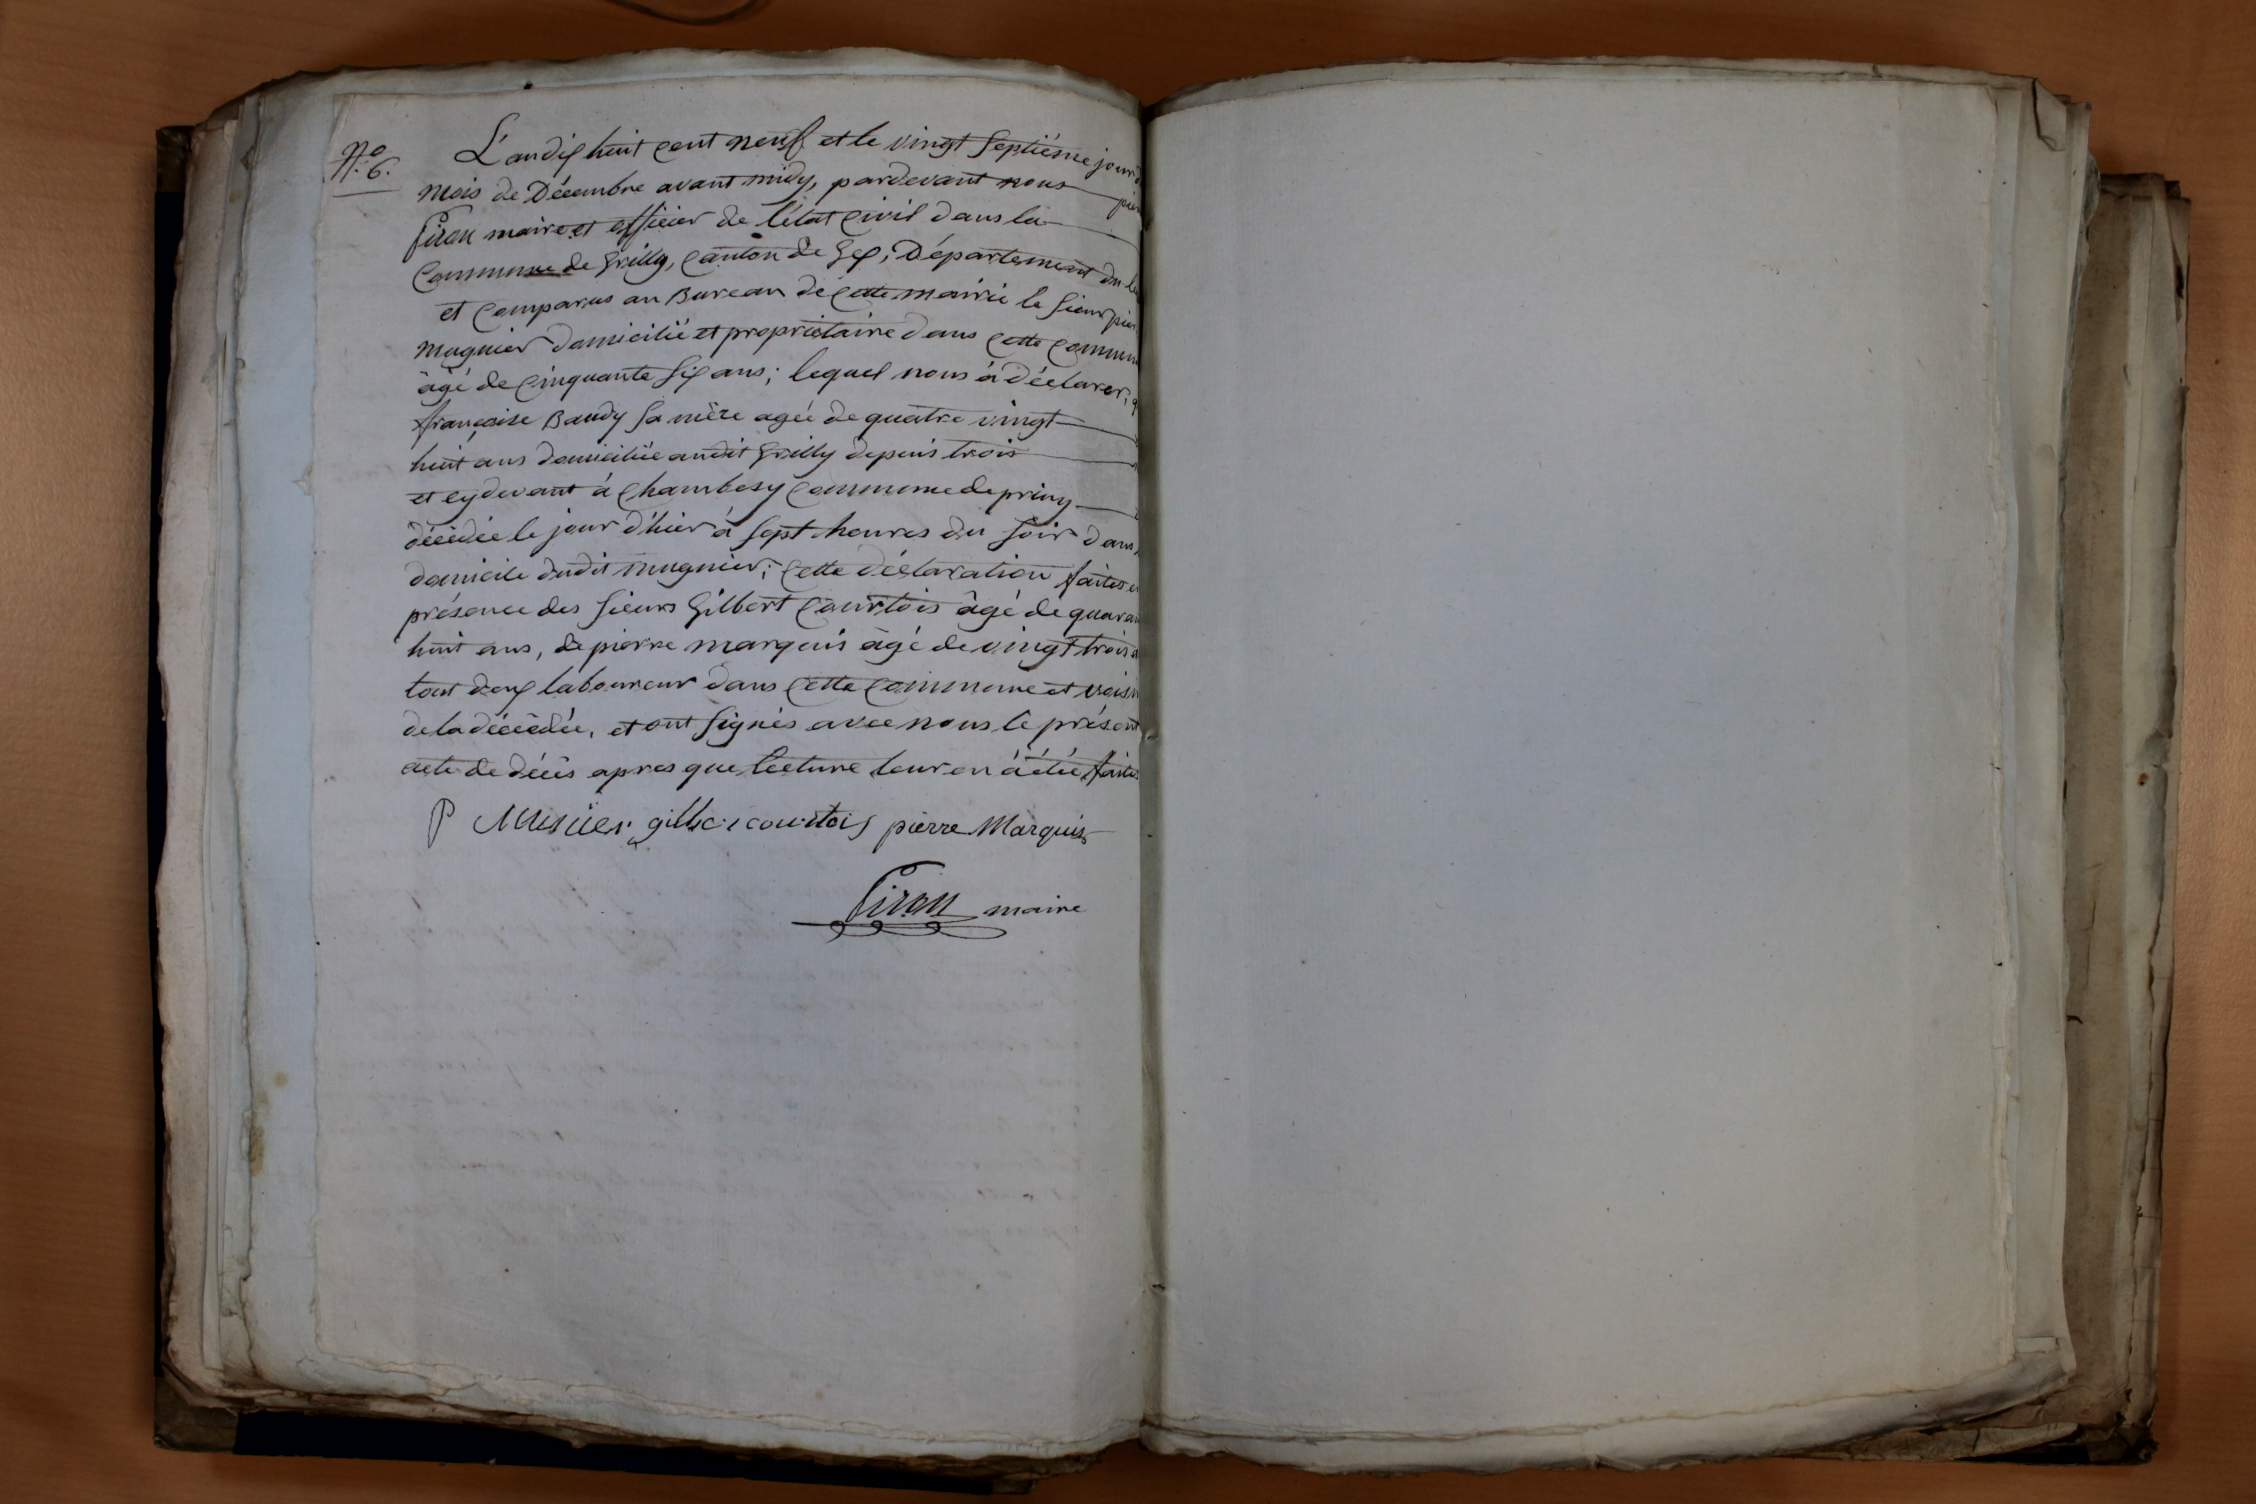 N.o 6.
L'an dix huit cent neuf et le vingt septiéme jour
mois de Décembre avant midy, pardevant nous
Giron maire et officier de l'état civil dans la
Commune de Grilly, Canton de Gex, Département du
et Comparus au Bureau de Cette mairie le Sieur
mugnier domicilié et proprietaire dans Cette Commun
âgé de Cinquante Six ans; lequel nous à déclarer,
françoise Baudy sa mère agée de quatre vingt
huit ans domiciliée audit Grilly depuis trois
et cy devant à Chambesy Commune de priny
décédée le jour d'hier à Sept heures du Soir dans
domicile dudit mugnier; Cette déclaration faites
présence des Sieurs Gilbert Courtois âgé de quaran
huit ans, de pierre marquis âgé de vingt trois
tout deux laboureur dans Cette Commune et voisin
de la décédée, et ont Signés avec nous le présent
acte de décès apres que lecture leur en à été faite
P Munier gilber courtois pierre Marquis
Giron maire